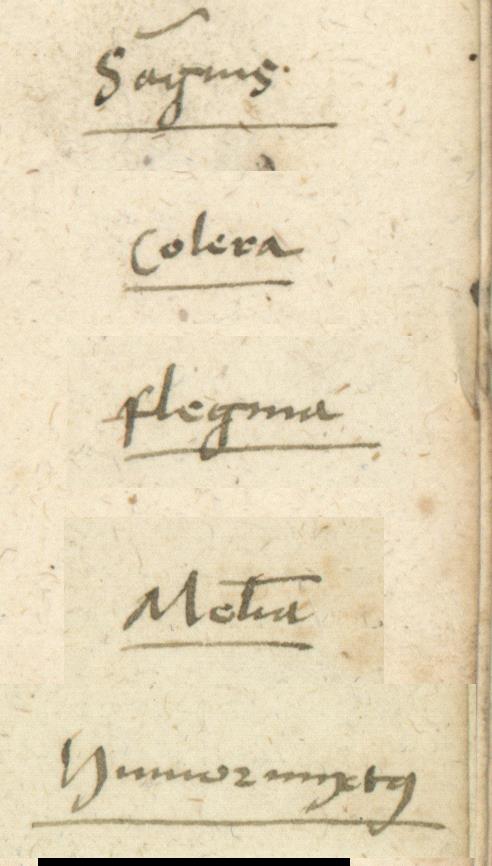 Sāguis
Colera
flegma
Mēlia
Humor mixtꝰ